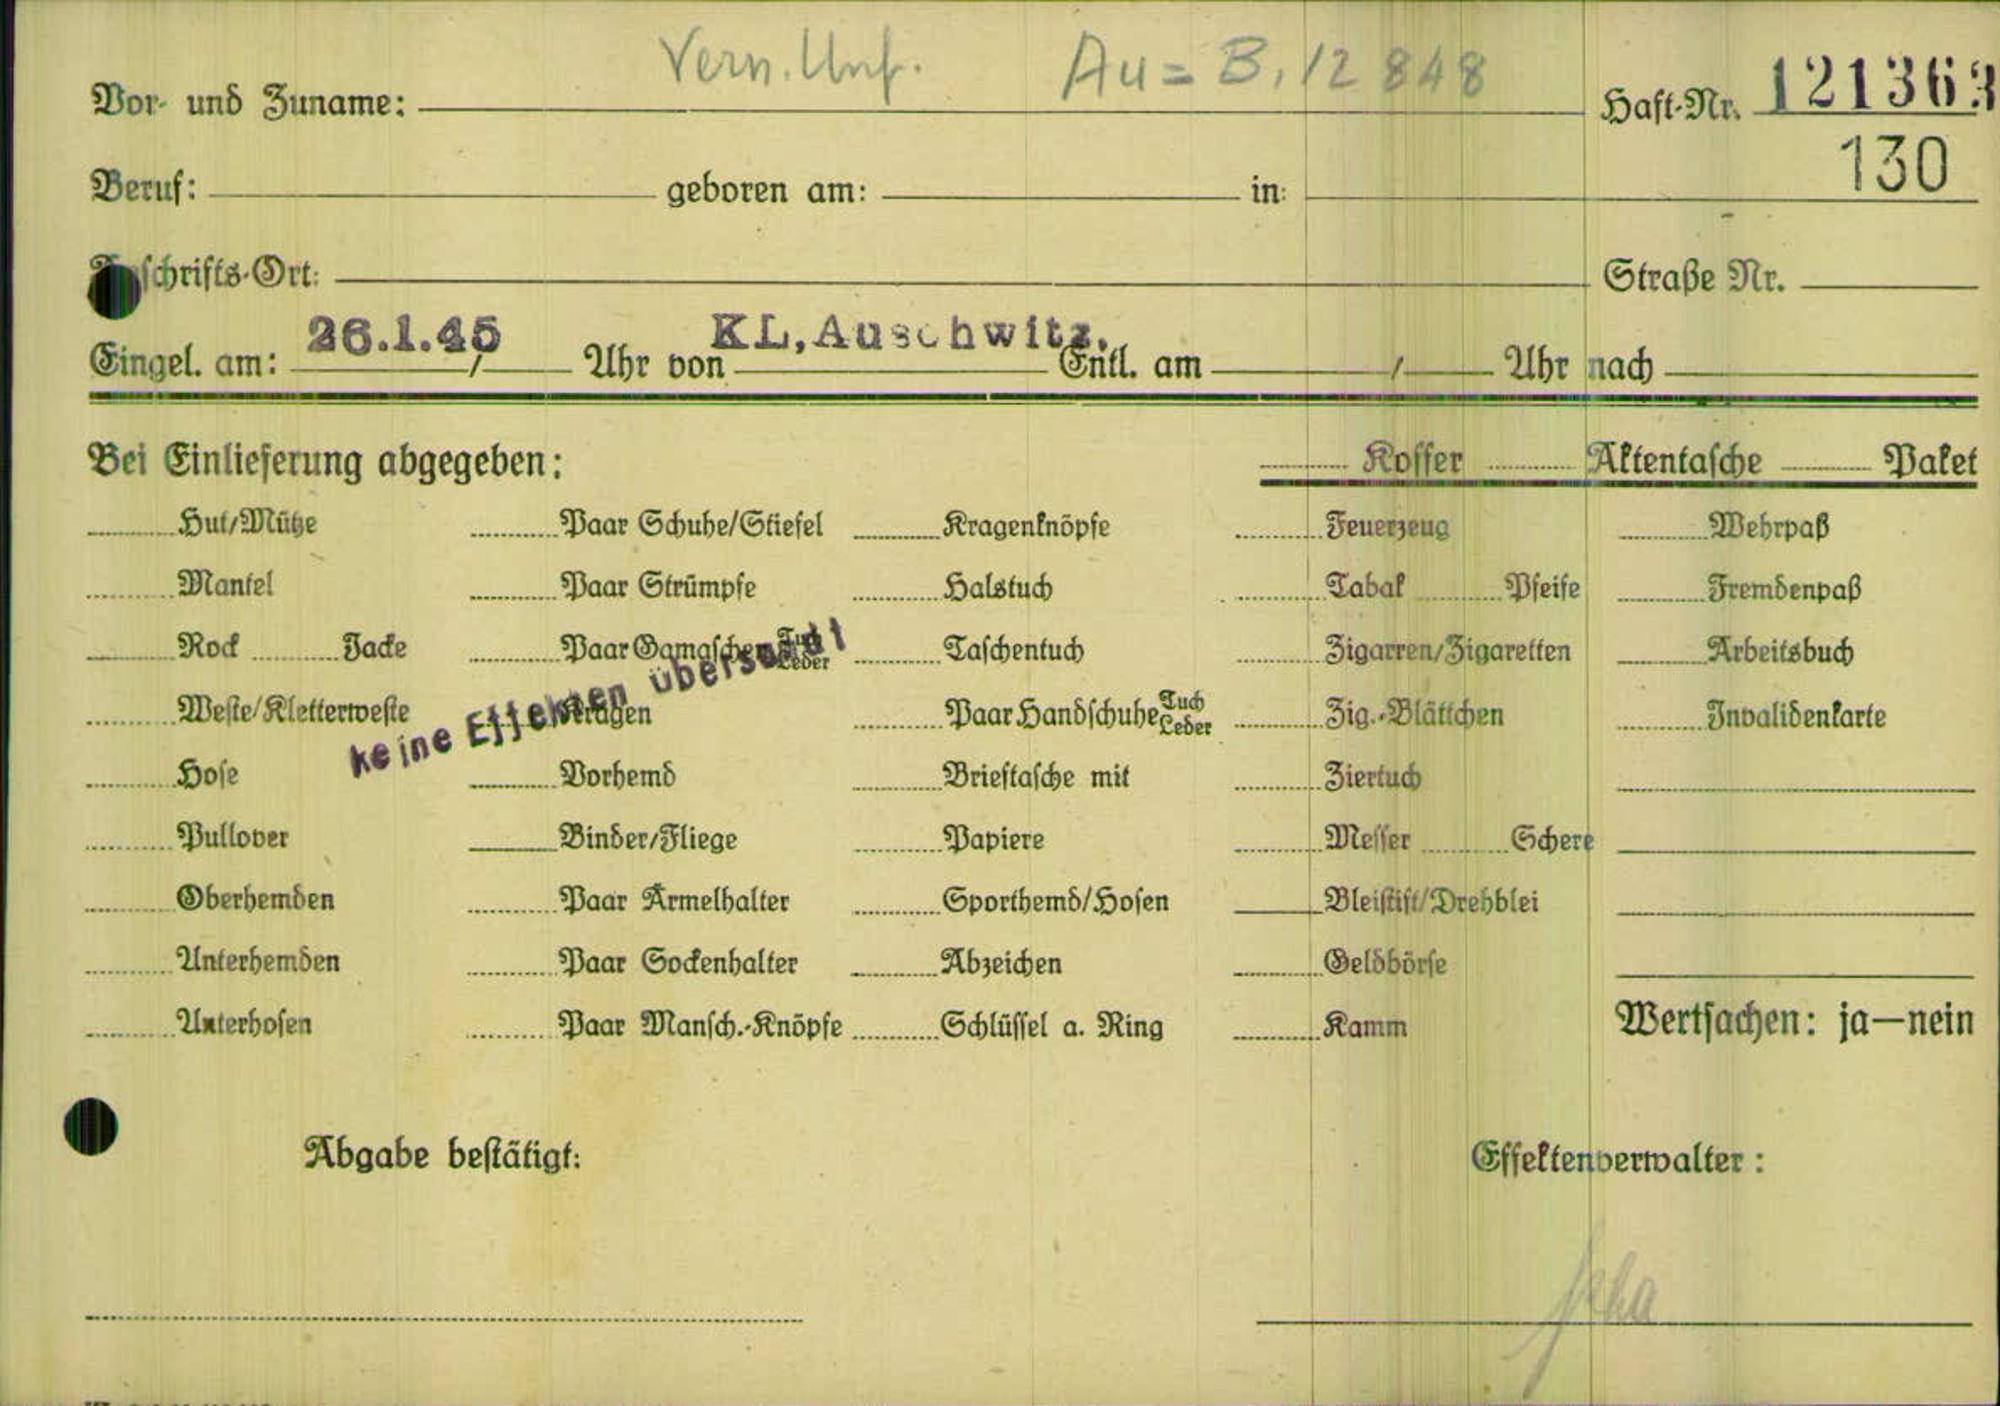 Vern. Unf. Au = B. 12848
Vor- und Zuname: Haft-Nr. 121363
130
Beruf: geboren am: in:
schrifts-Ort: Straße Nr.
Eingel. am: 26.1.45 / Uhr von KL, Auschwitz. Entl. am / Uhr nach
Bei Einlieferung abgegeben: Koffer Aktentasche Paket
Hut/Mütze Paar Schuhe/Stiefel Kragenknöpfe Feuerzeug Wehrpaß
Mantel Paar Strümpfe Halstuch Tabak Pfeife Fremdenpaß
Rock Jacke Paar Gamaschen Tuch Leder Taschentuch Zigarren/Zigaretten Arbeitsbuch
Weste/Kletterweste Kragen Paar Handschuhe Tuch Leder Zig.-Blättchen Invalidenkarte
keine Effekten übersandt
Hose Vorhemd Brieftasche mit Ziertuch
Pullover Binder/Fliege Papiere Messer Schere
Oberhemden Paar Ärmelhalter Sporthemd/Hosen Bleistift/Drehblei
Unterhemden Paar Sockenhalter Abzeichen Geldbörse
Unterhosen Paar Mansch.-Knöpfe Schlüssel a. Ring Kamm Wertsachen: ja—nein
Abgabe bestätigt: Effektenverwalter: